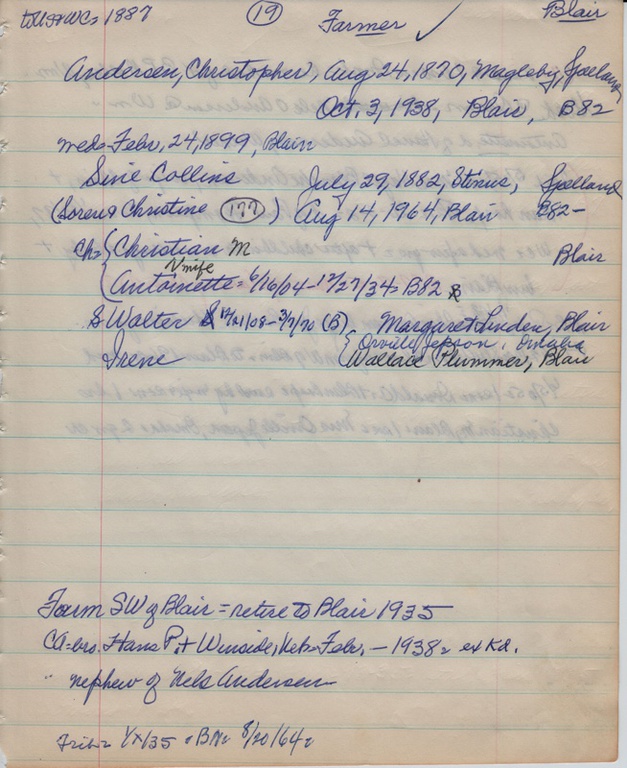 to US + WC = 1887 (19) Farmer ✓ Blair
Andersen, Christopher, Aug 24, 1870, Magleby, Sjælland,
Oct. 3, 1938, Blair, B82
wed = Febr. 24, 1899, Blair
Sine Collins July 29, 1882, Stinus, Sjælland
(Soren & Christine (177)) Aug 14, 1964, Blair B82-
Ch = Christian M Blair
V. mife
Antoinette = 6/16/04 - 12/27/34 = B82 S
S Walter 12/21/08 - 3/7/70 (B) Margaret Linden, Blair
Orville Jepson, Omaha
Irene Wallace Plummer, Blair
Farm SW of Blair = retire to Blair 1935
CA = bro. Hans P. + Winside, Neb = Febr. - 1938 = ex Kd.
" nephew of Nels Andersen
Trib = 1/X/35 = BN = 8/20/64 =